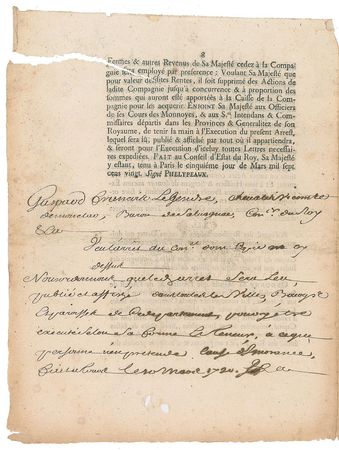 8
Fermes & autres Revenus de Sa Majesté cedez à la Compa-
gnie sera employé par preference : Voulant Sa Majesté que
pour valeur desdites Rentes, il soit supprimé des Actions de
ladite Compagnie jusqu'à concurrence & à proportion des
sommes qui auront esté apportées à la Caisse de la Com-
pagnie pour les acquerir. ENJOINT SA MAJESTÉ aux Officiers
de ses Cours des Monnoyes, & aux Srs Intendans & Com-
missaires départis dans les Provinces & Generalitez de son
Royaume, de tenir la main à l'Execution du present Arrest,
lequel sera lû, publié & affiché par tout où il appartiendra,
& seront pour l'Execution d'iceluy toutes Lettres necessai-
res expediées. FAIT au Conseil d'Estat du Roy, Sa Majesté
y estant, tenu à Paris le cinquiéme jour de Mars mil sept
cens vingt. Signé PHELYPEAUX.
Gaspard François Legendre, 
Baron de 
&a
Veu l'arrest du 
dessus
Nous ordonnons que led arrest sera Leu
publié et affiché dans toutes les Villes Bourgs
et parroisses de 
executé selon sa forme et teneur, à ce que
personne n'en pretende cause d'Ignorance,
le 20 Mars 1720.